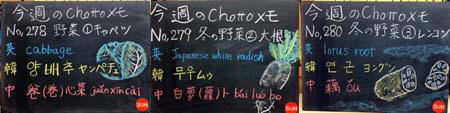 今週のChottoメモ
No,278 野菜①キャベツ
英 cabbage
韓 양배추 ヤンペチュ
中 卷(巻)心菜 juǎn xīn cài
SUN
今週のChottoメモ
No,279 冬の野菜② 大根
英 Japanese white radish
韓 무우 ムウ
中 白萝(蘿)卜 bái luó bo
SUN
今週のChottoメモ
No,280 冬の野菜③ レンコン
英 lotus root
韓 연근 ヨングン
中 藕 ǒu
SUN